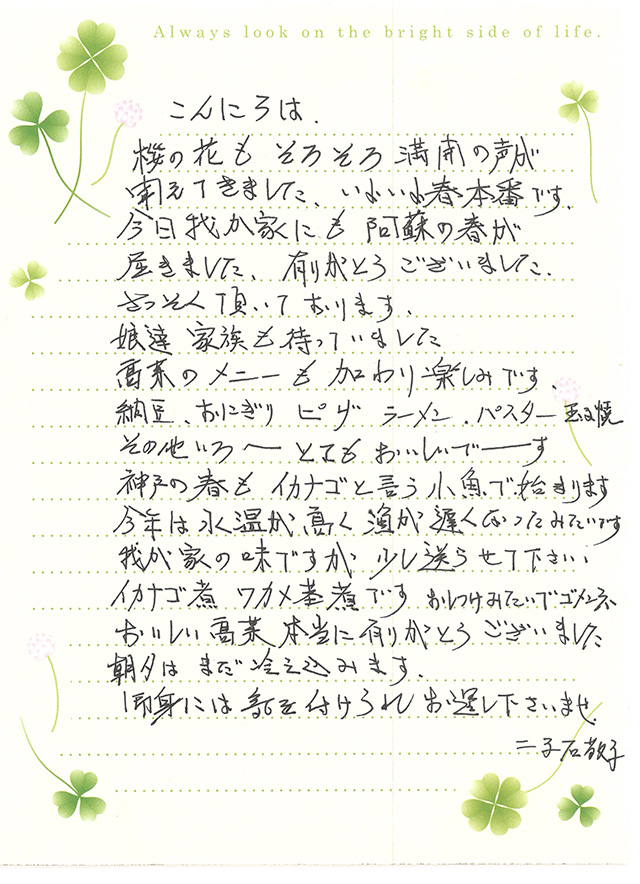 Always look on the bright side of life.
こんにちは.
桜の花も そろそろ 満開の声が
聞えてきました、いよいよ春本番です.
今日我が家にも 阿蘇の春が
届きました、有りがとうございました.
さっそく頂いております.
娘達 家族も待っていました
高菜のメニーも加わり楽しみです、
納豆、おにぎり ピザ ラーメン、パスター 玉子焼
その他いろ〜〜 とてもおいしいで――す
神戸の春も イカナゴと言う小魚で始まります
今年は水温が高く漁が遅くなったみたいです
我が家の味ですが 少し送らせて下さい
イカナゴ煮 ワカメ茎煮です おしつけみたいでゴメンネ
おいしい高菜本当に有りがとうございました
朝夕は まだ冷え込みます.
御身には気を付けられお過し下さいませ.
二子石